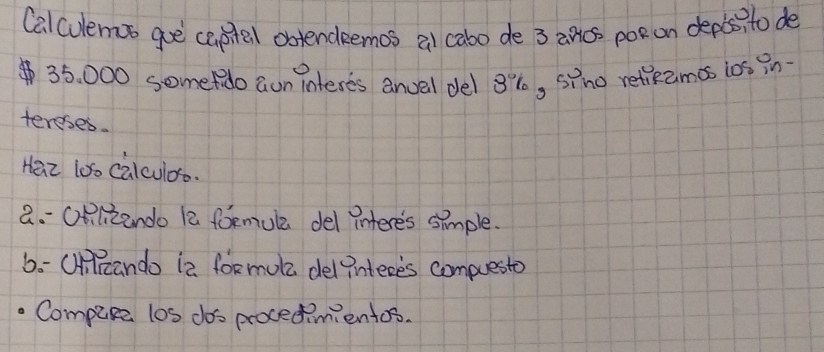 Calculemos qué capital obtendremos al cabo de 3 años por un depósito de
$ 35.000 sometido a un interés anual del 8%, si no retiramos los in-
tereses.
Haz los cálculos.
a.- Utilizando la fórmula del interés simple.
b.- Utilizando la fórmula del interés compuesto
• Compara los dos procedimientos.